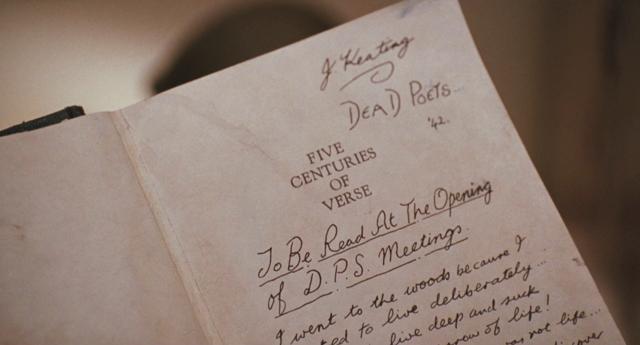 J. Keating
DEAD POETS
'42.
FIVE
CENTURIES
OF
VERSE
To Be Read At The Opening
of D.P.S. Meetings.
I went to the woods because I
ted to live deliberately...
live deep and suck
rrow of life!
was not life...
cover